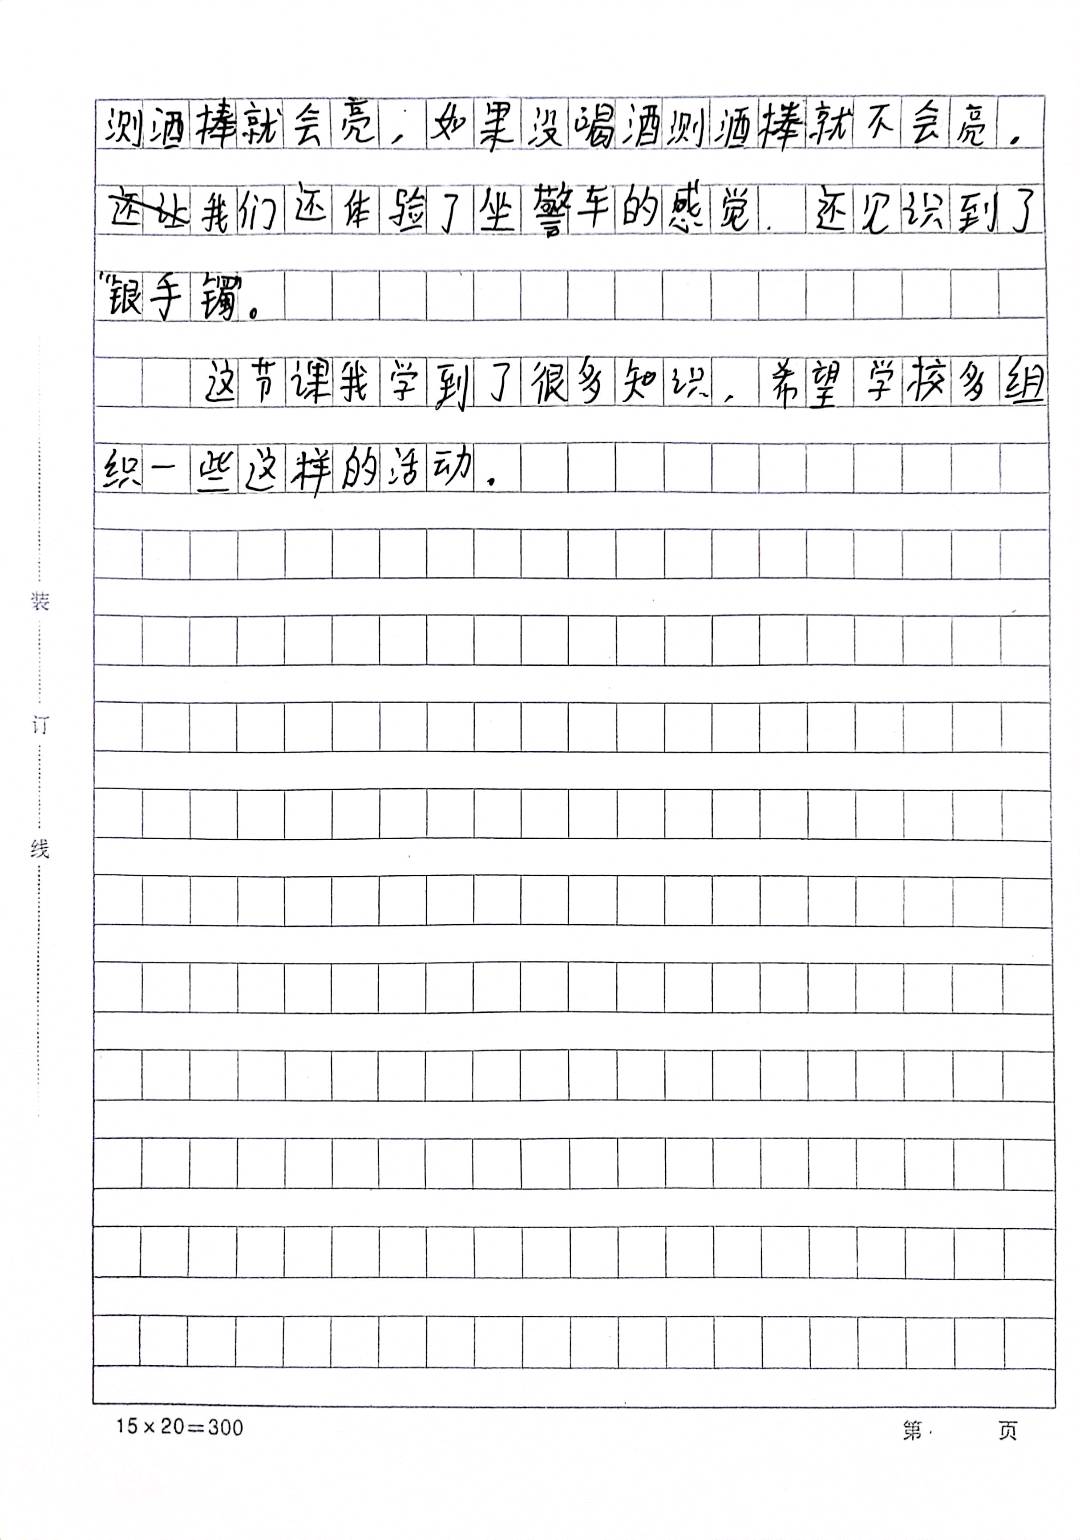 测酒棒就会亮，如果没喝酒测酒棒就不会亮．
还让我们还体验了坐警车的感觉．还见识到了
“银手镯”。
这节课我学到了很多知识，希望学校多组
织一些这样的活动．
装
订
线
15×20=300
第 页